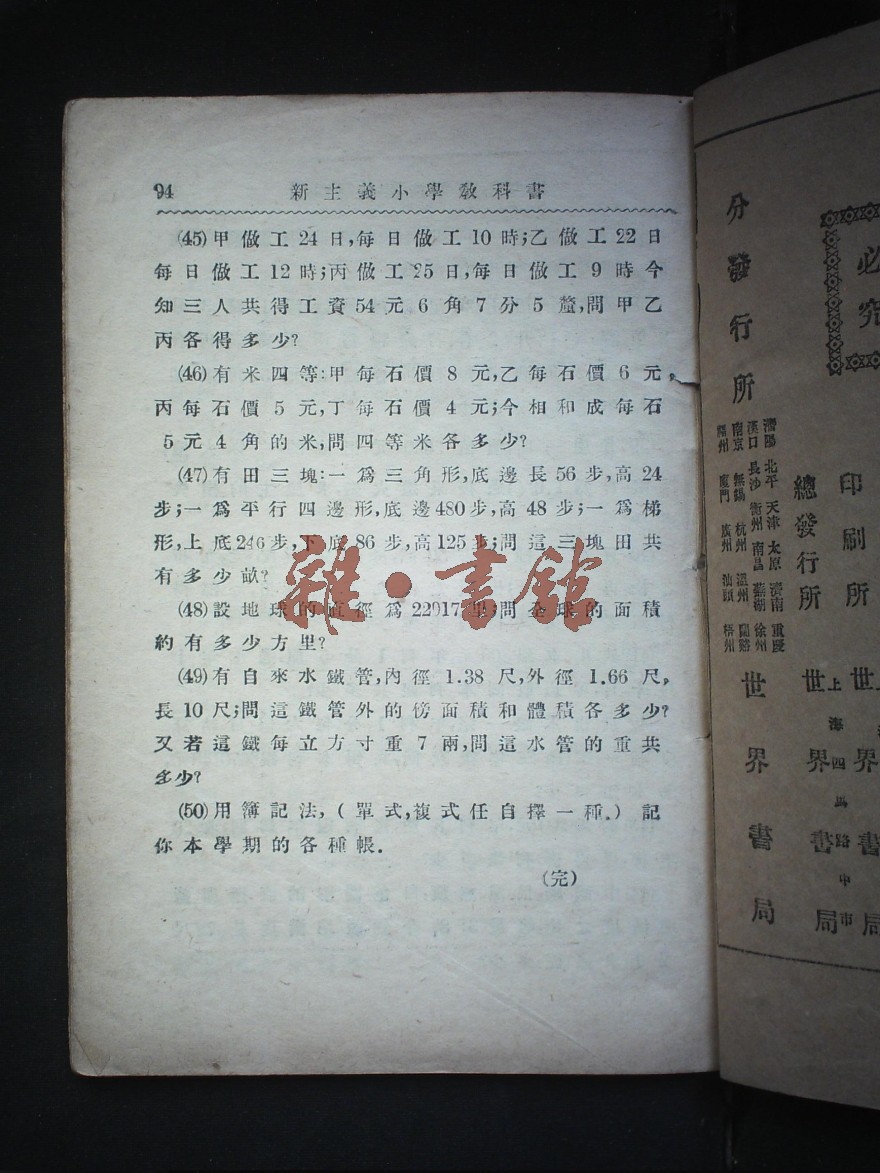 94 新主義小學教科書
(45)甲做工24日,每日做工10時;乙做工22日
每日做工12時;丙做工25日,每日做工9時今
知三人共得工資54元6角7分5釐,問甲乙
丙各得多少?
(46)有米四等:甲每石價8元,乙每石價6元,
丙每石價5元,丁每石價4元;今相和成每石
5元4角的米,問四等米各多少?
(47)有田三塊:一爲三角形,底邊長56步,高24
步;一爲平行四邊形,底邊480步,高48步;一爲梯
形,上底246步,下底86步,高125步;問這三塊田共
有多少畝?
(48)設地球的直徑爲22917里;問全球的面積
約有多少方里?
(49)有自來水鐵管,內徑1.38尺,外徑1.66尺,
長10尺;問這鐵管外的傍面積和體積各多少?
又若這鐵每立方寸重7兩,問這水管的重共
多少?
(50)用簿記法,(單式,複式任自擇一種.)記
你本學期的各種帳.
(完)
雜·書館
必究
印刷所
上海
世界書局
總發行所
上海四馬路中市
世界書局
分發行所
瀋陽 北平 天津 太原 濟南 重慶
漢口 長沙 衡州 南昌 蕪湖 徐州
南京 無錫 杭州 溫州
廈門 廣州 汕頭 梧州
世界書局